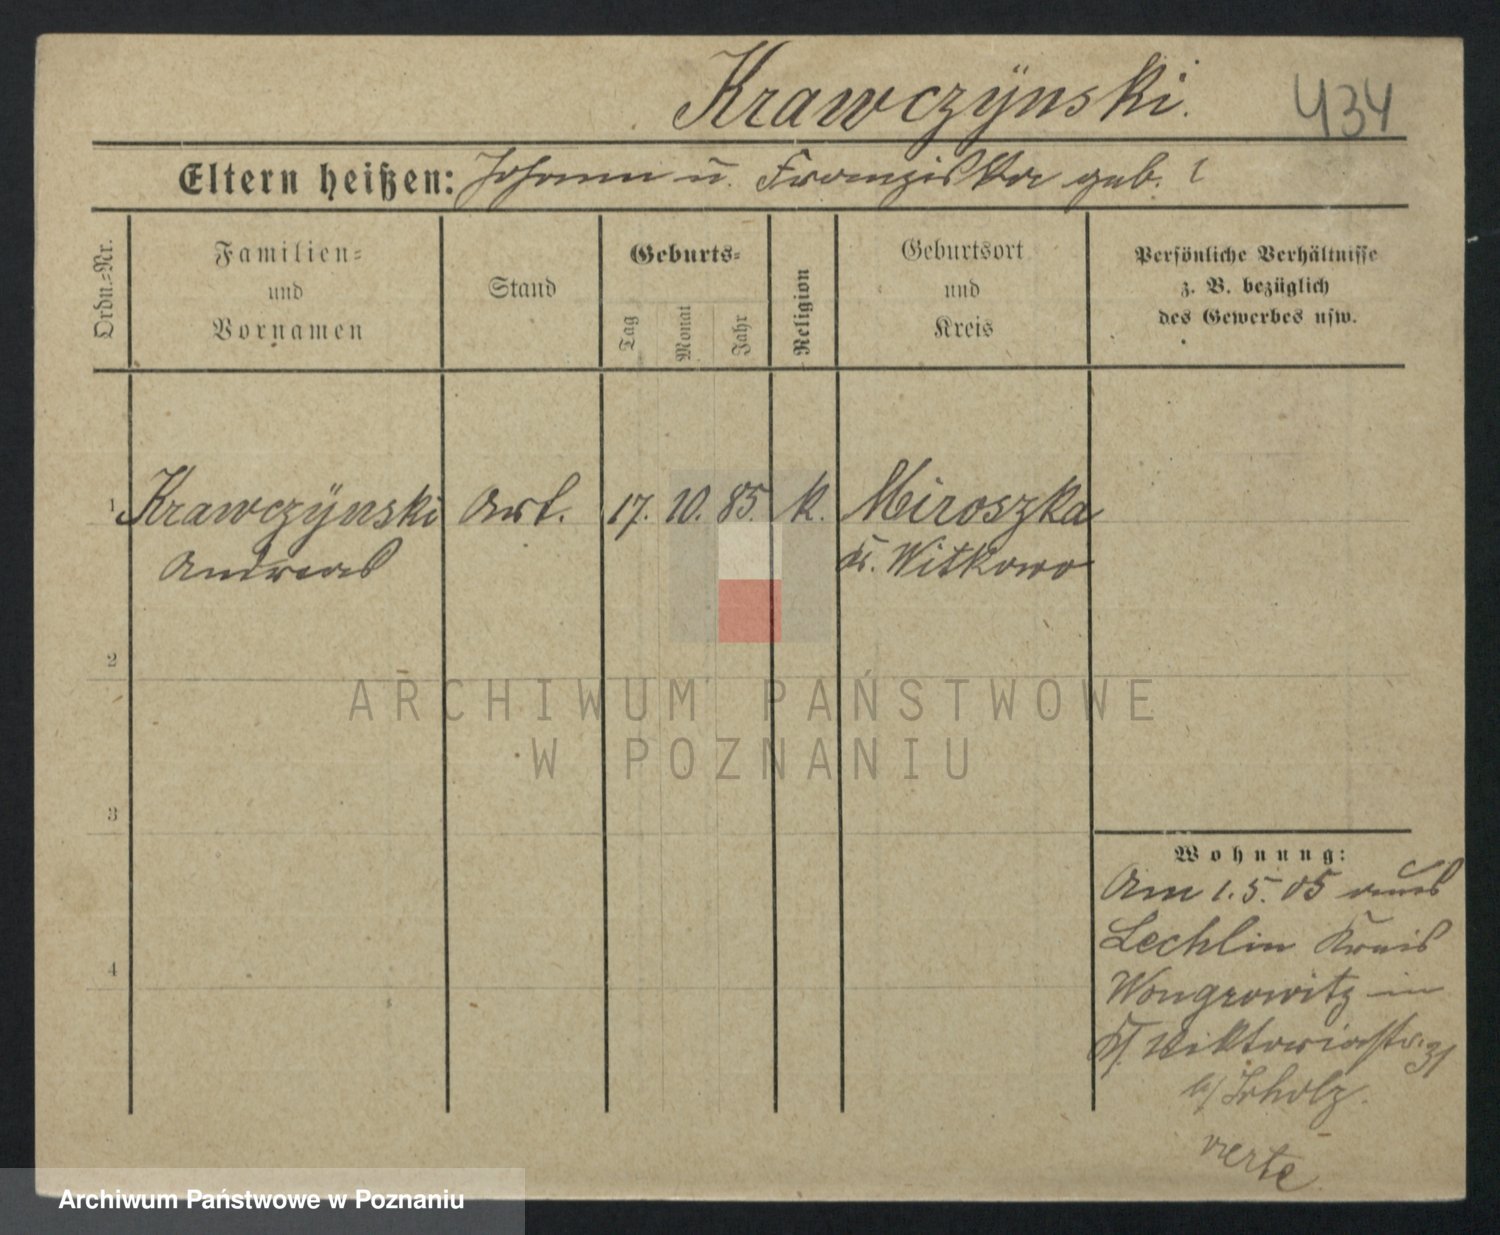 Krawczÿnski.
434
Eltern heißen: Johann u. Franziska geb. ?
Ordn.-Nr.
Familien-
und
Vornamen
Stand
Geburts-
Tag
Monat
Jahr
Religion
Geburtsort
und
Kreis
Persönliche Verhältnisse
z. B. bezüglich
des Gewerbes usw.
1 Krawczÿnski Arb. 17. 10. 85. k. Miroszka
Andreas Kr. Witkowo
2
3
4
Wohnung:
Am 1.5.05 aus
Lechlin Kreis
Wongrowitz in
Viktoriastr. 31
b/
verte
ARCHIWUM PAŃSTWOWE
W POZNANIU
Archiwum Państwowe w Poznaniu